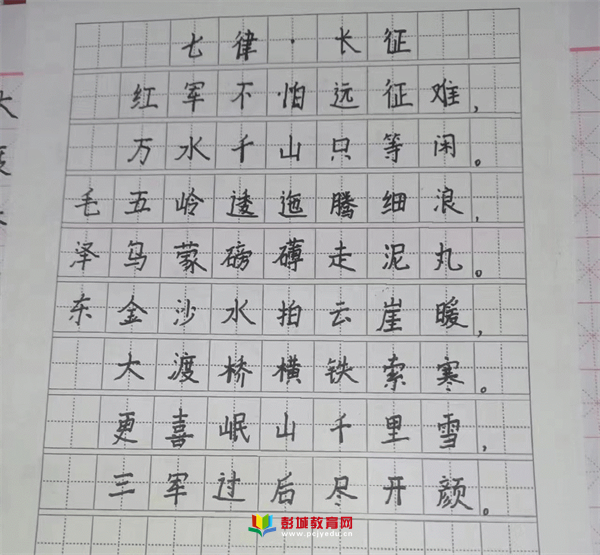 七律·长征
红军不怕远征难，
万水千山只等闲。
毛五岭逶迤腾细浪，
泽乌蒙磅礴走泥丸。
东金沙水拍云崖暖，
大渡桥横铁索寒。
更喜岷山千里雪，
三军过后尽开颜。
彭城教育网
www.pcjyedu.cn